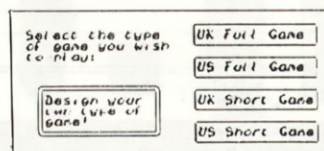 Select the type
of game you wish
to play:
Design your
own type of
game!
UK Full Game
US Full Game
UK Short Game
US Short Game